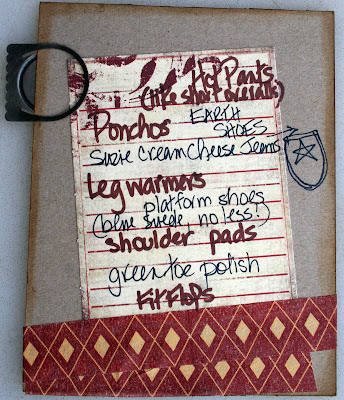 Hot Pants
(like short overalls)
Ponchos EARTH SHOES
Suzie Creamcheese Jeans
Leg warmers
platform shoes
(blue swede no less!)
shoulder pads
green toe polish
Kit Flops